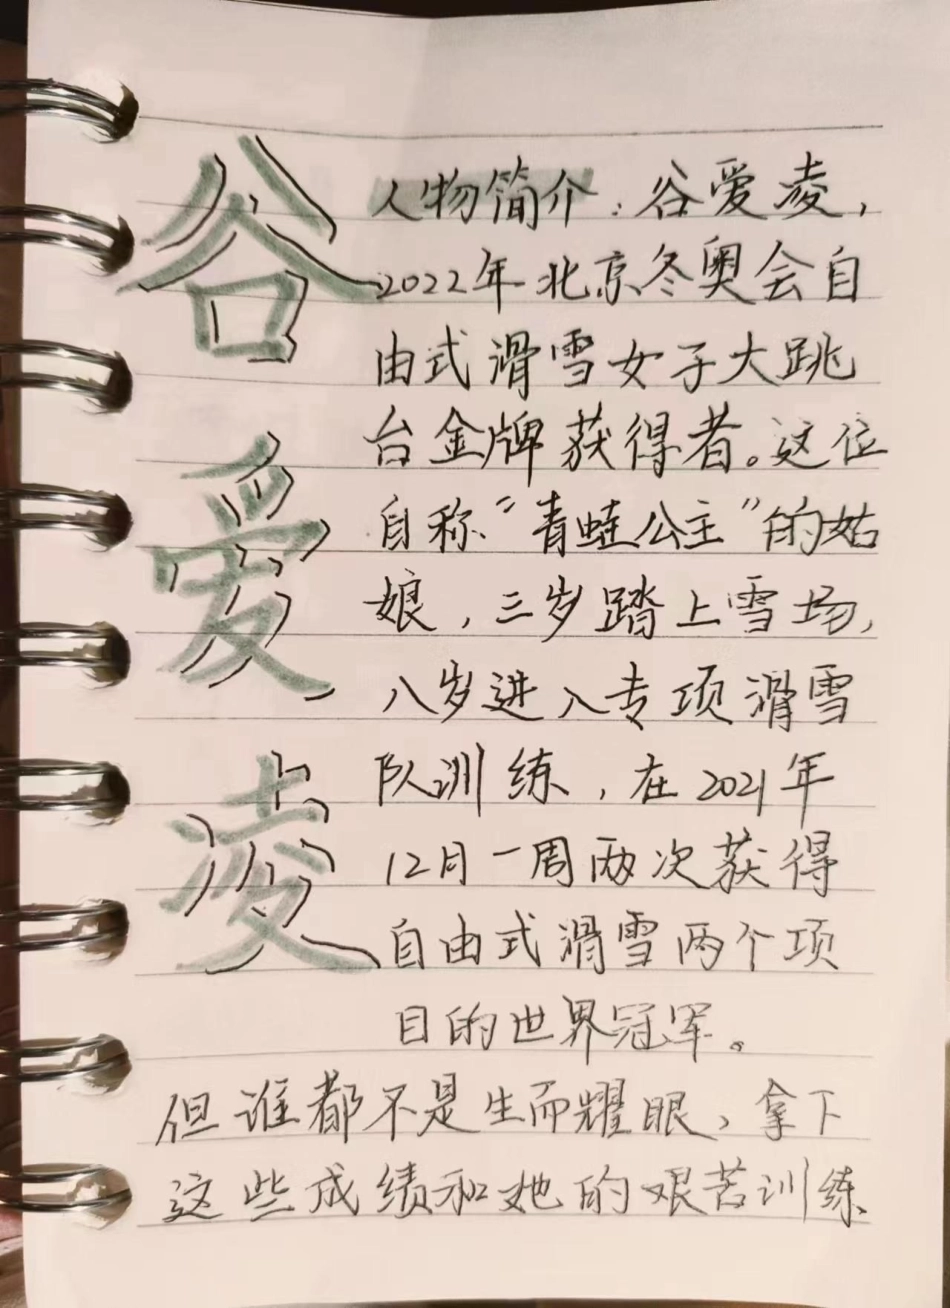 谷爱凌
人物简介：谷爱凌，
2022年北京冬奥会自
由式滑雪女子大跳
台金牌获得者。这位
自称“青蛙公主”的姑
娘，三岁踏上雪场，
八岁进入专项滑雪
队训练，在2021年
12月一周两次获得
自由式滑雪两个项
目的世界冠军。
但谁都不是生而耀眼，拿下
这些成绩和她的艰苦训练